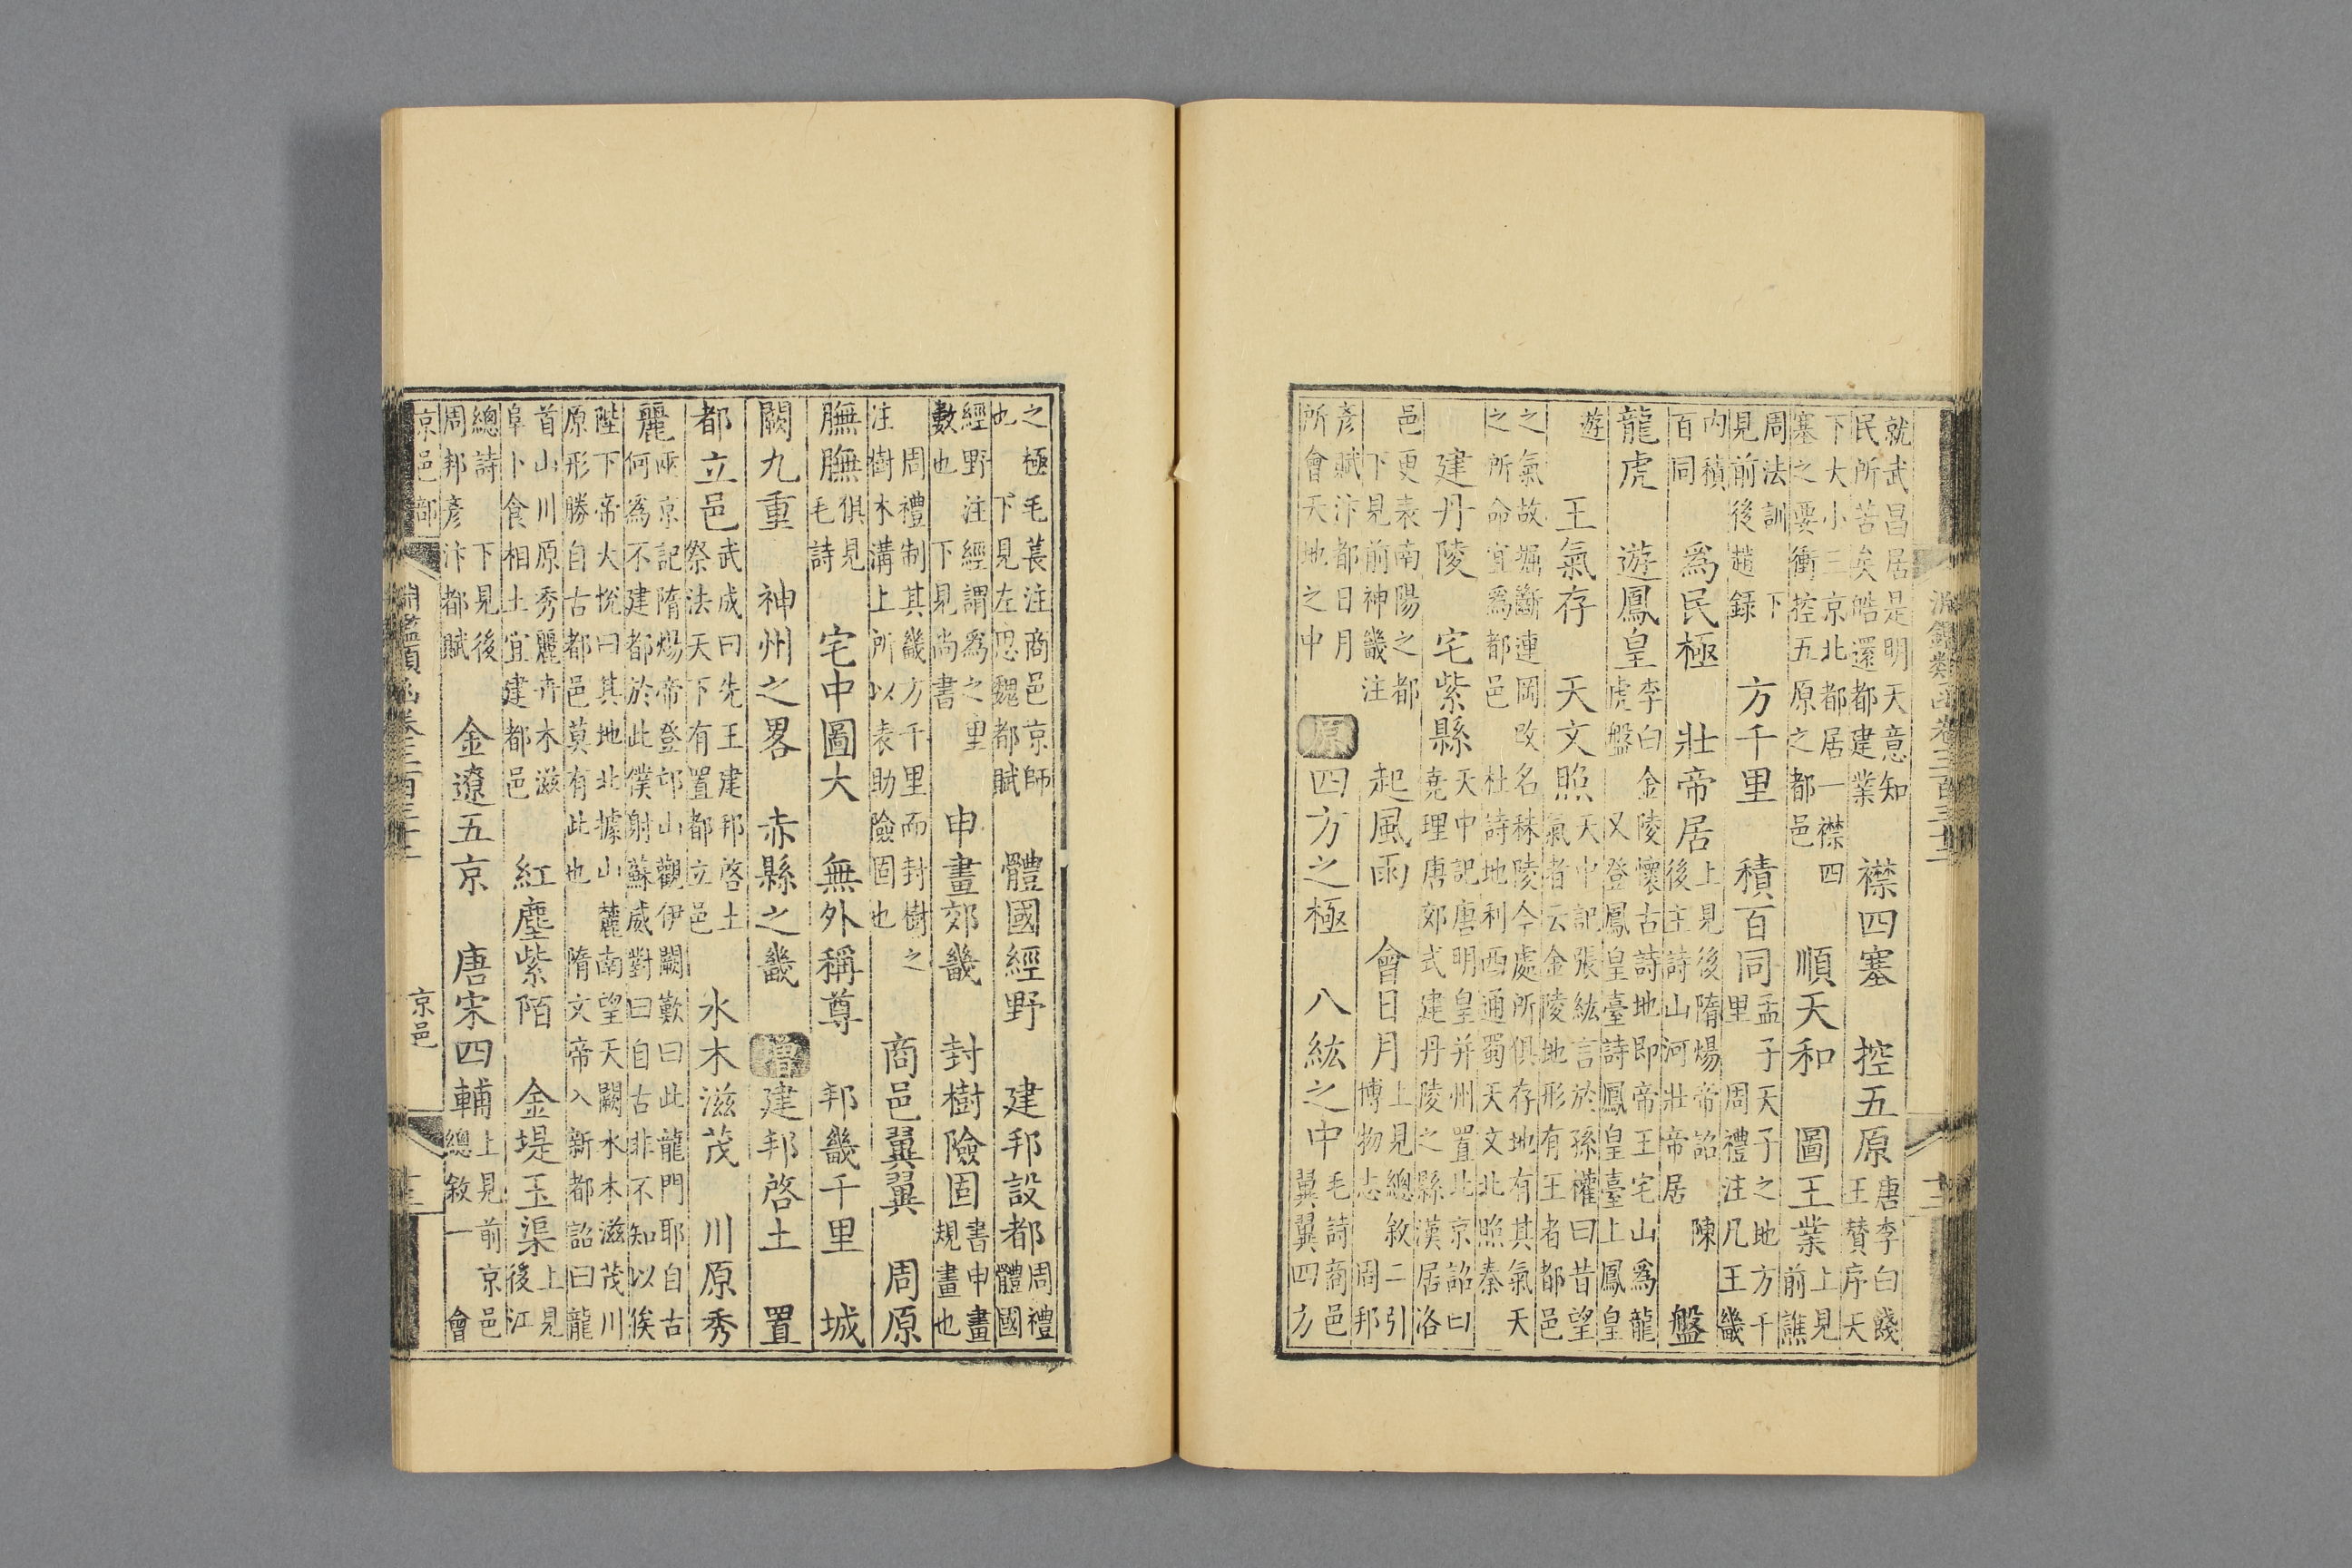 淵鑑類函卷三百三十三
就武昌居是明天意知
民所苦矣皓還都建業
襟四塞 控五原
唐李白餞
王贊序天
下大小三京北都居一襟四
塞之要衝控五原之都邑
順天和 圖王業
上見
前譙
周法訓 下
見前後趙録
方千里 積百同
孟子天子之地方千
里 周禮注凡王畿
内積
百同
爲民極 壯帝居
上見後隋煬帝詔 陳
後主詩山河壯帝居
盤
龍虎 遊鳳皇
李白金陵懷古詩地即帝王宅山爲龍
虎盤 又登鳳皇臺詩鳳皇臺上鳳皇
遊
王氣存 天文照
天中記張紘言於孫權曰昔望
氣者云金陵地形有王者都邑
之氣故堀斷連岡改名秣陵今處所俱存地有其氣天
之所命宜爲都邑 杜詩地利西通蜀天文北照秦
建丹陵 宅紫縣
天中記唐明皇并州置北京詔曰
堯理唐郊式建丹陵之縣漢居洛
邑更表南陽之都
下見前神畿注
起風雨 會日月
上見總敘二引
博物志 周邦
彦賦汴都日月
所會天地之中
原 四方之極 八紘之中
毛詩商邑
翼翼四方
之極毛萇注商邑京師
也 下見左思魏都賦
體國經野 建邦設都
周禮
體國
經野注經謂爲之里
數也 下見尚書
申畫郊畿 封樹險固
書申畫
規畫也
周禮制其畿方千里而封樹之
注樹木溝上所以表助險固也
商邑翼翼 周原
膴膴
俱見
毛詩
宅中圖大 無外稱尊 邦畿千里 城
闕九重 神州之畧 赤縣之畿 增 建邦啓土 置
都立邑
武成曰先王建邦啓土
祭法天下有置都立邑
水木滋茂 川原秀
麗
兩京記隋煬帝登邙山觀伊闕歎曰此龍門耶自古
何爲不建都於此僕射蘇威對曰自古非不知以俟
陛下帝大悅曰其地北據山麓南望天闕水木滋茂川
原形勝自古都邑莫有此也 隋文帝入新都詔曰龍
首山川原秀麗卉木滋
阜卜食相土宜建都邑
紅塵紫陌 金堤玉渠
上見
後江
總詩 下見後
周邦彦汴都賦
金遼五京 唐宋四輔
上見前京邑
總敘一
會
京邑部
京邑